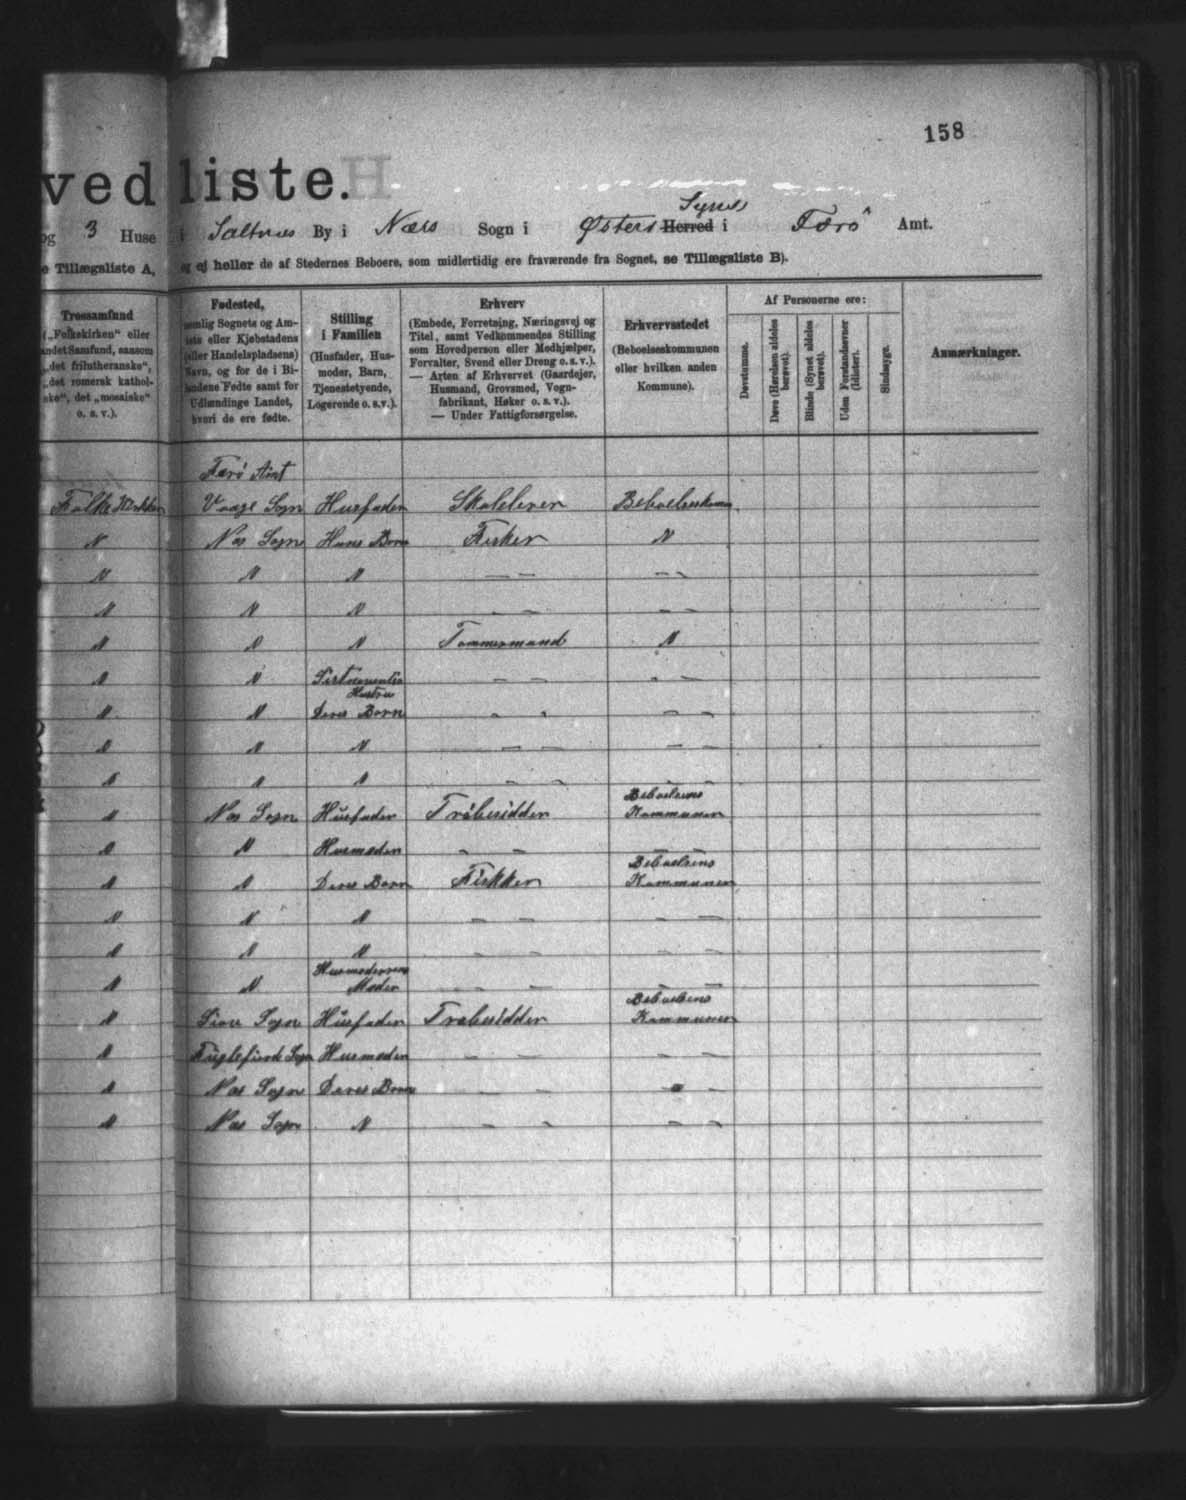 158
ved liste.
og 3 Huse i Saltnæs By i Næs Sogn i Østerø Syssel Herred i Færö Amt.
e Tillægsliste A, og ej heller de af Stedernes Beboere, som midlertidig ere fraværende fra Sognet, se Tillægsliste B).
Trossamfund
(„Folkekirken“ eller
andet Samfund, saasom
„det frilutheranske“,
„det romersk kathol-
ske“, det „mosaiske“
o. s. v.).
Fødested,
nemlig Sognets og Am-
tets eller Kjøbstadens
(eller Handelspladsens)
Navn, og for de i Bi-
landene Fødte samt for
Udlændinge Landet,
hvori de ere fødte.
Stilling
i Familien
(Husfader, Hus-
moder, Barn,
Tjenestetyende,
Logerende o. s. v.).
Erhverv
(Embede, Forretning, Næringsvej og
Titel, samt Vedkommendes Stilling
som Hovedperson eller Medhjælper,
Forvalter, Svend eller Dreng o. s. v.).
— Arten af Erhvervet (Gaardejer,
Husmand, Grovsmed, Vogn-
fabrikant, Høker o. s. v.).
— Under Fattigforsørgelse.
Erhvervsstedet
(Beboelseskommunen
eller hvilken anden
Kommune).
Af Personerne ere:
Døvstumme.
Døve (Hørelsen aldeles
berøvet).
Blinde (Synet aldeles
berøvet).
Uden Forstandsevner
(Idioter).
Sindssyge.
Anmærkninger.
Færö Amt
Folke Kirken Vaage Sogn Husfader Skolelerer Beboelseskom
N Næs Sogn Hans Børn Fisker N
N N N — — — —
N N N — — — —
N N N Tømmermand N
N N Hustru — — — —
N N Deres Børn — — — —
N N N — — — —
N N N — —
N Næs Sogn Husfader Fröbesidder Beboelsens
Kommunen
N N Husmoder — — — —
N N Deres Børn Fisker Beboelsens
Kommunen
N N N — — — —
N N N — — — —
N N Husmoderens
Moder — — — —
N Sogn Husfader Fröbesidder Beboelsens
Kommunen
N Fuglefjords Sogn Husmoder — — — —
N Næs Sogn Deres Børn — — —
N Næs Sogn N — — — —